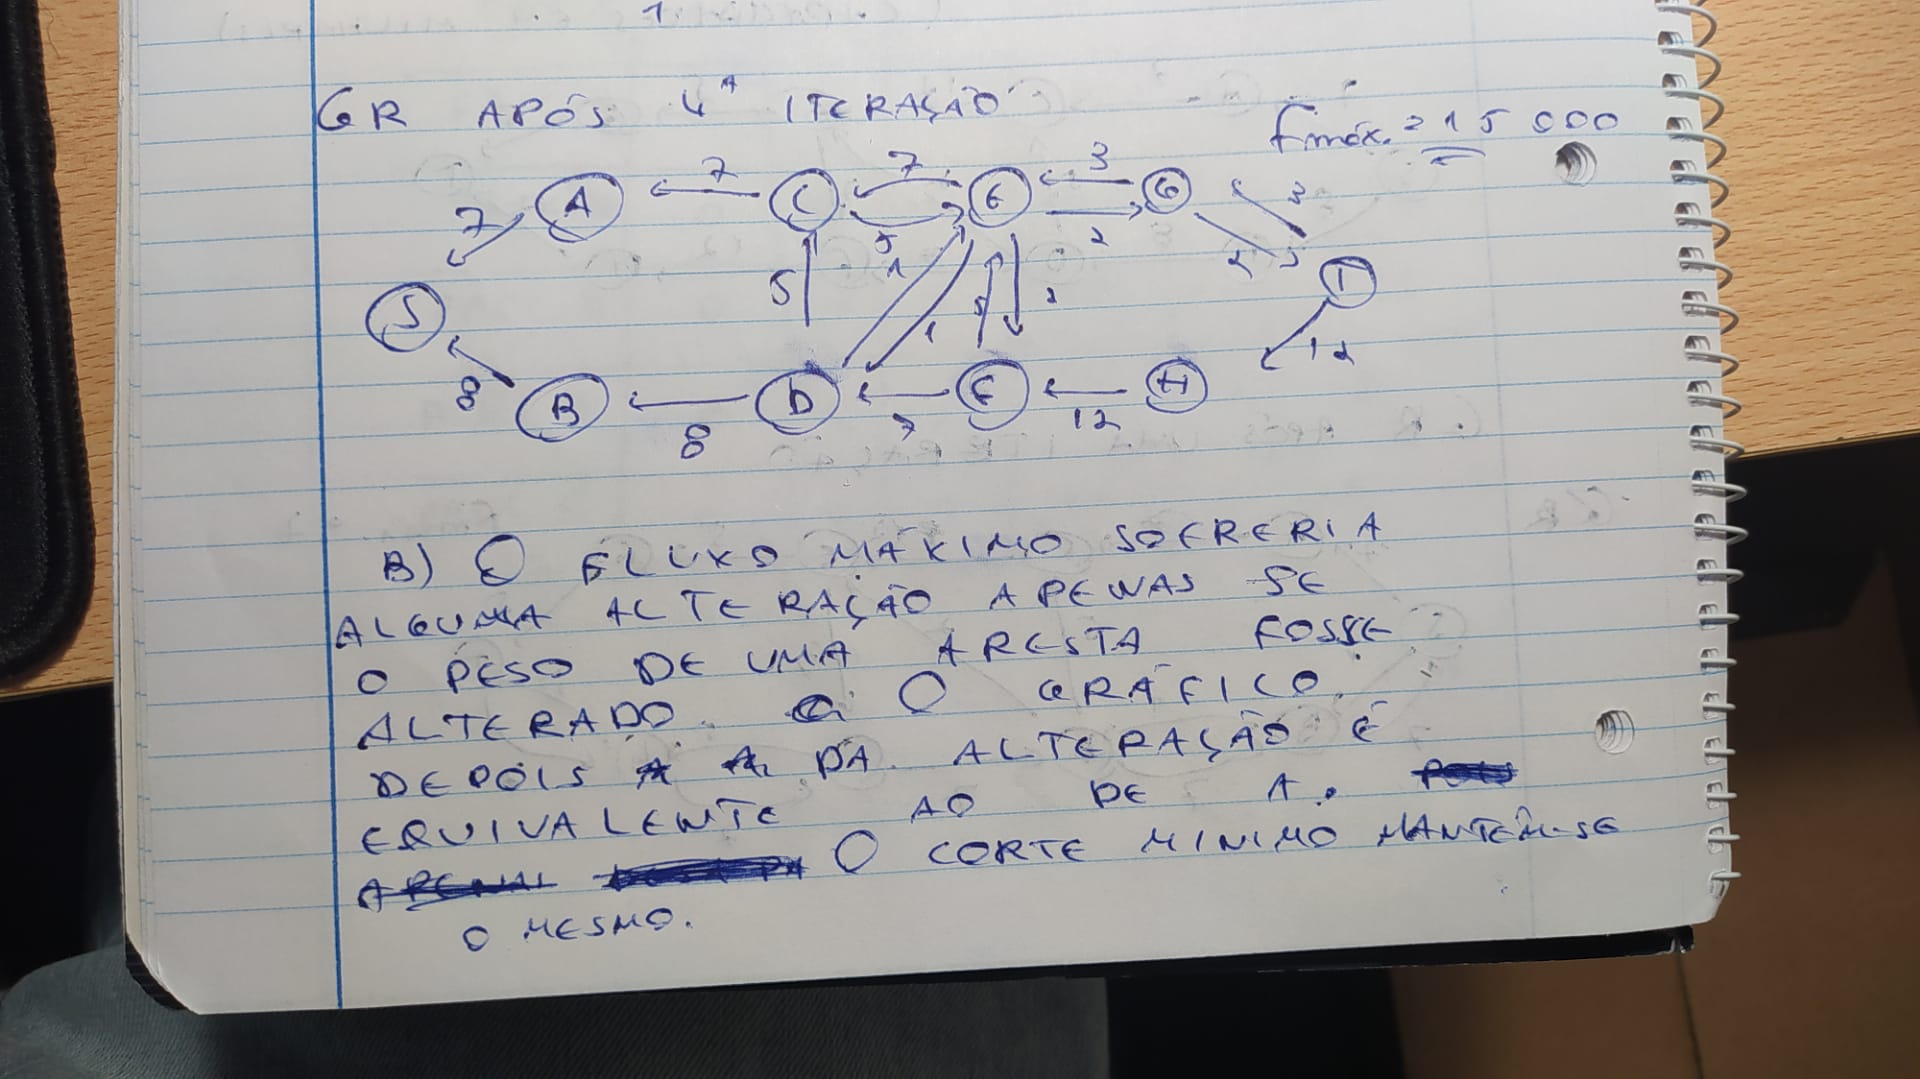 1
GR APÓS 4ª ITERAÇÃO
Fmáx. = 15 000
7 7 3
A C E G 3
7 5 2 2
S 5 1 1 5 2 T
12
8 B D F H
8 7 12
B) O FLUXO MÁXIMO SOFRERIA
ALGUMA ALTERAÇÃO APENAS SE
O PESO DE UMA ARESTA FOSSE
ALTERADO. O GRÁFICO
DEPOIS DA ALTERAÇÃO É
EQUIVALENTE AO DE A.
O CORTE MINIMO MANTÉM-SE
O MESMO.